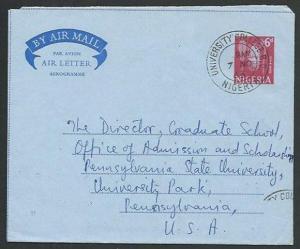 BY AIR MAIL
PAR AVION
AIR LETTER
AEROGRAMME
UNIVERSITY COLL
NIGERIA
6d
NIGERIA
The Director, Graduate School,
Office of Admission and Scholarship
Pennsylvania State University,
University Park,
Pennsylvania,
U. S. A.